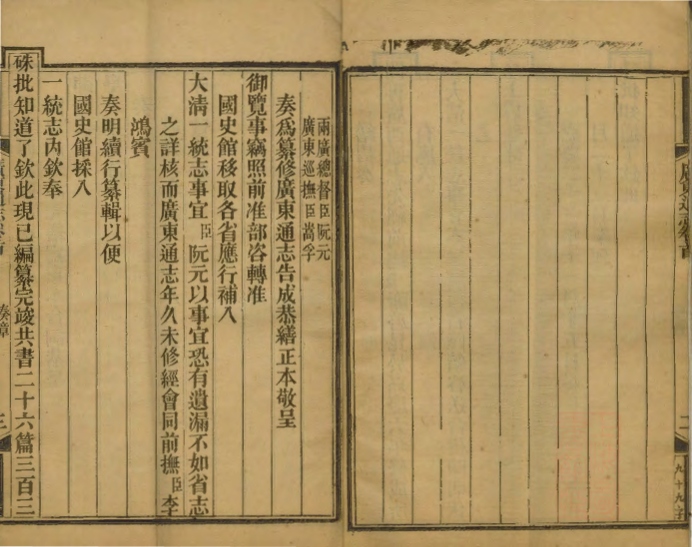 兩廣總督臣阮元
廣東巡撫臣嵩孚
奏爲纂修廣東通志告成恭繕正本敬呈
御覽事竊照前准部咨轉准
國史館移取各省應行補入
大清一統志事宜臣阮元以事宜恐有遺漏不如省志
之詳核而廣東通志年久未修經會同前撫臣李
鴻賓
奏明續行纂輯以便
國史館採入
一統志內欽奉
硃批知道了欽此現已編纂完竣共書二十六篇三百三
奏章
三
二
九十九子